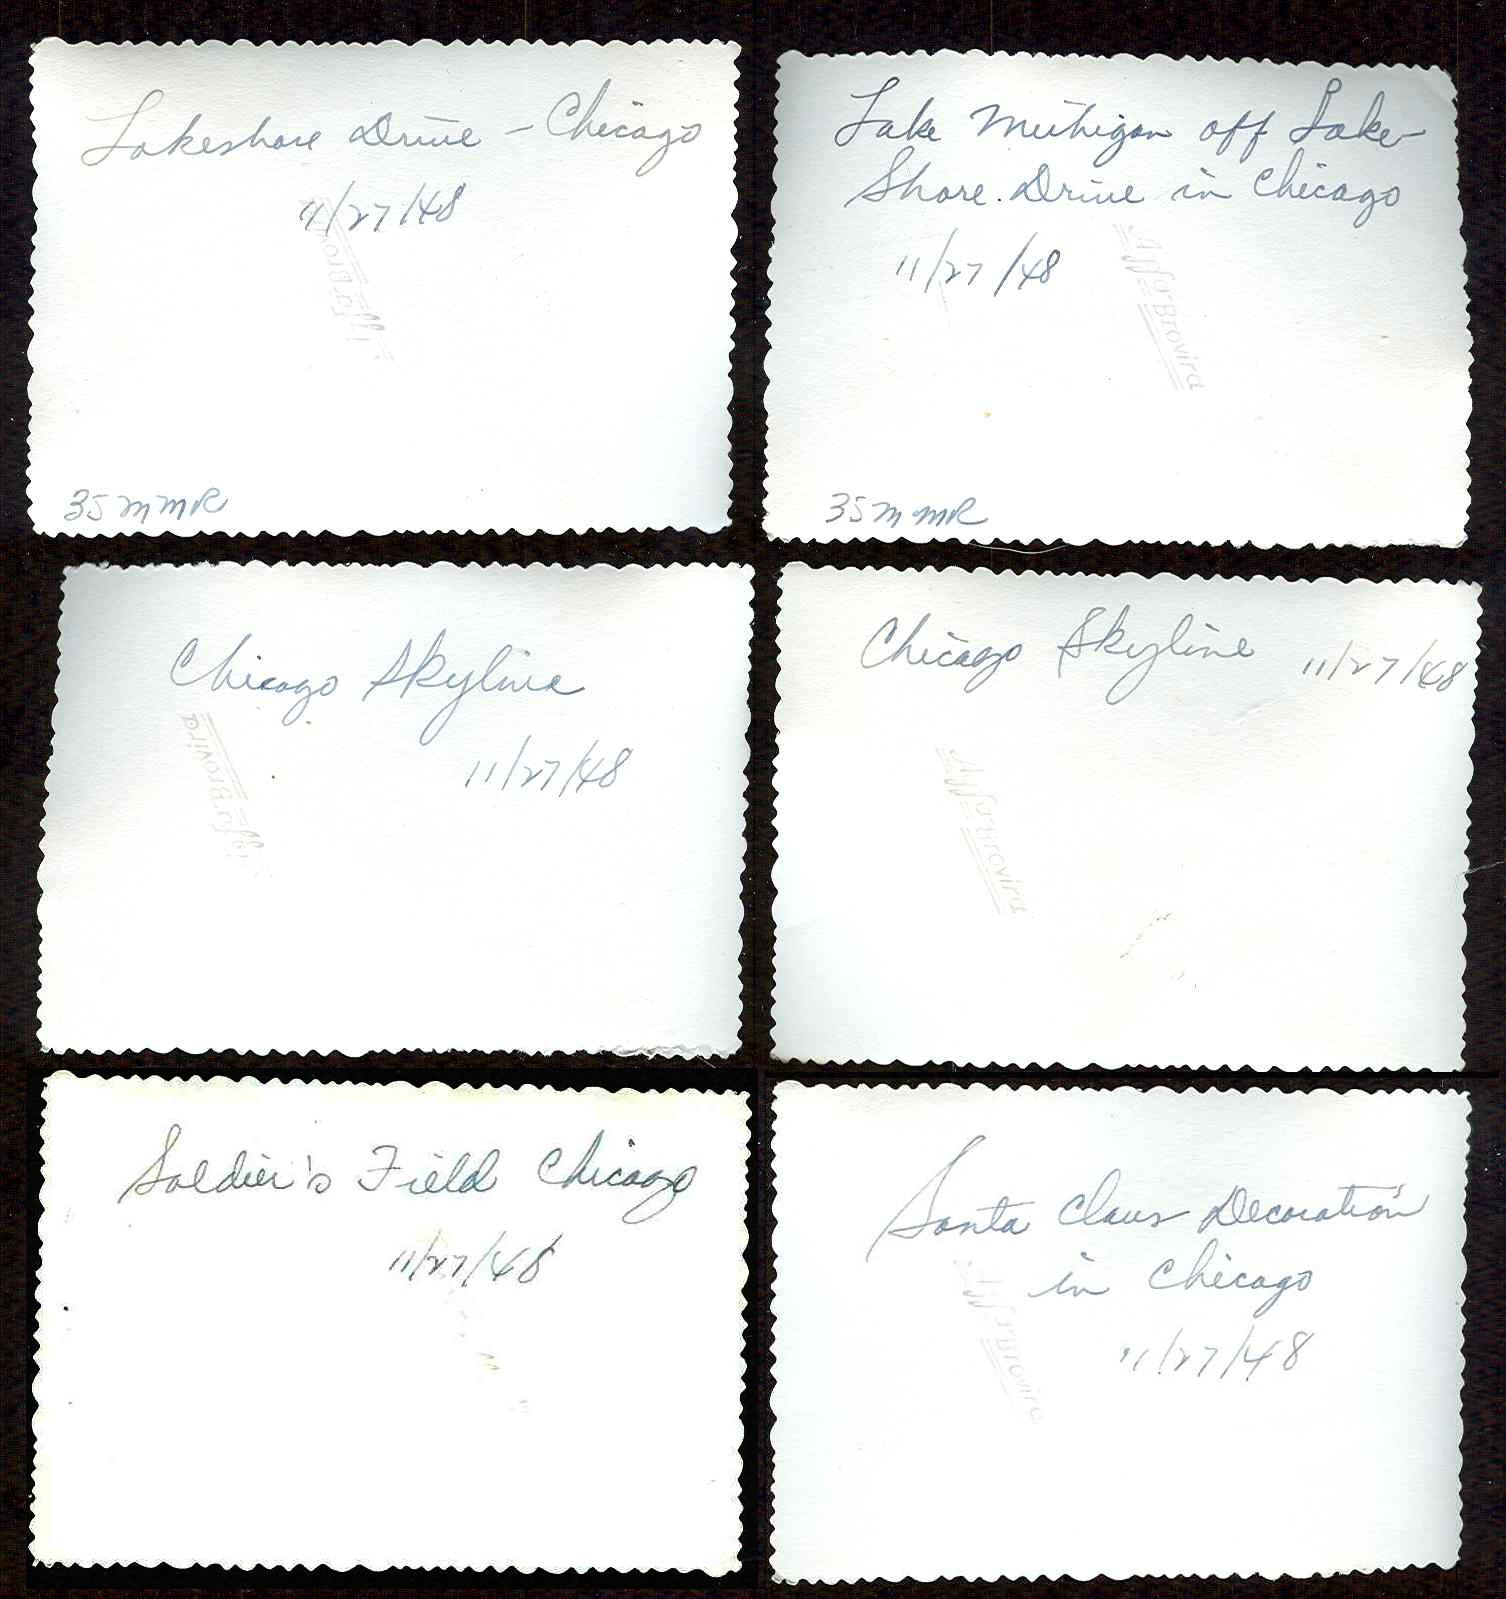 Lakeshore Drive - Chicago
11/27/48
35 MMR
Lake Michigan off Lake
Shore Drive in Chicago
11/27/48
Agfa Brovira
35 MMR
Chicago Skyline
11/27/48
Agfa Brovira
Chicago Skyline 11/27/48
Agfa Brovira
Soldier's Field Chicago
11/27/48
Santa Claus Decoration
in Chicago
11/27/48
Agfa Brovira